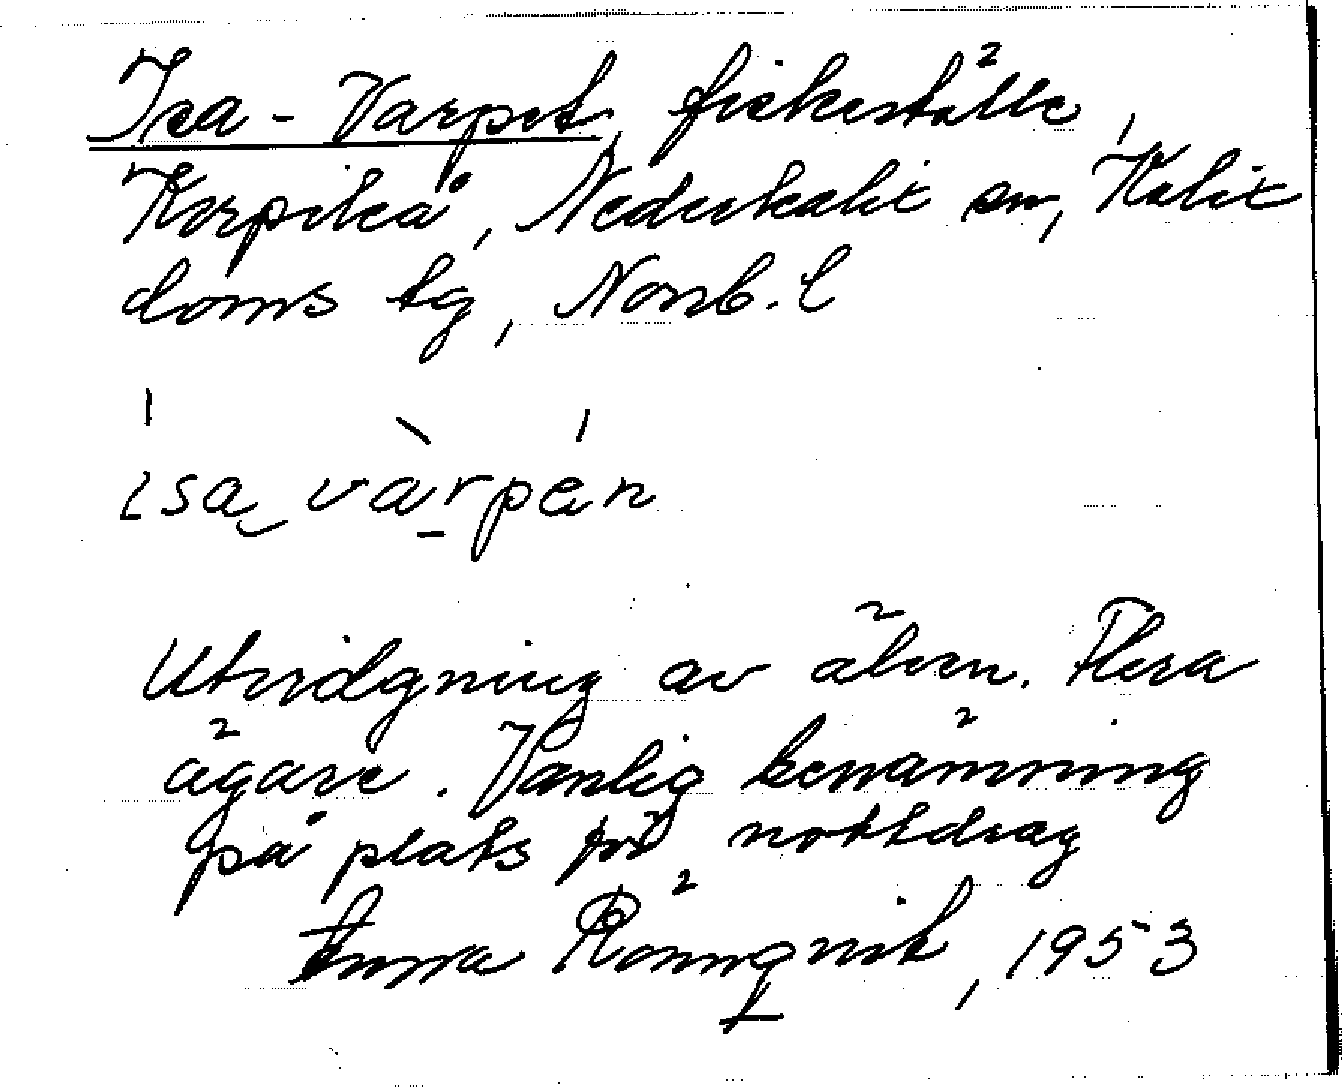 Isa-Varpet, fiskeställe,
Korpikå, Nederkalix sn, Kalix
doms tg, Norrb. l
isa vàrpén
Utvidgning av älven. Flera
ägare. Vanlig benämning
på plats för notdrag
Anna Rönnqvist, 1953